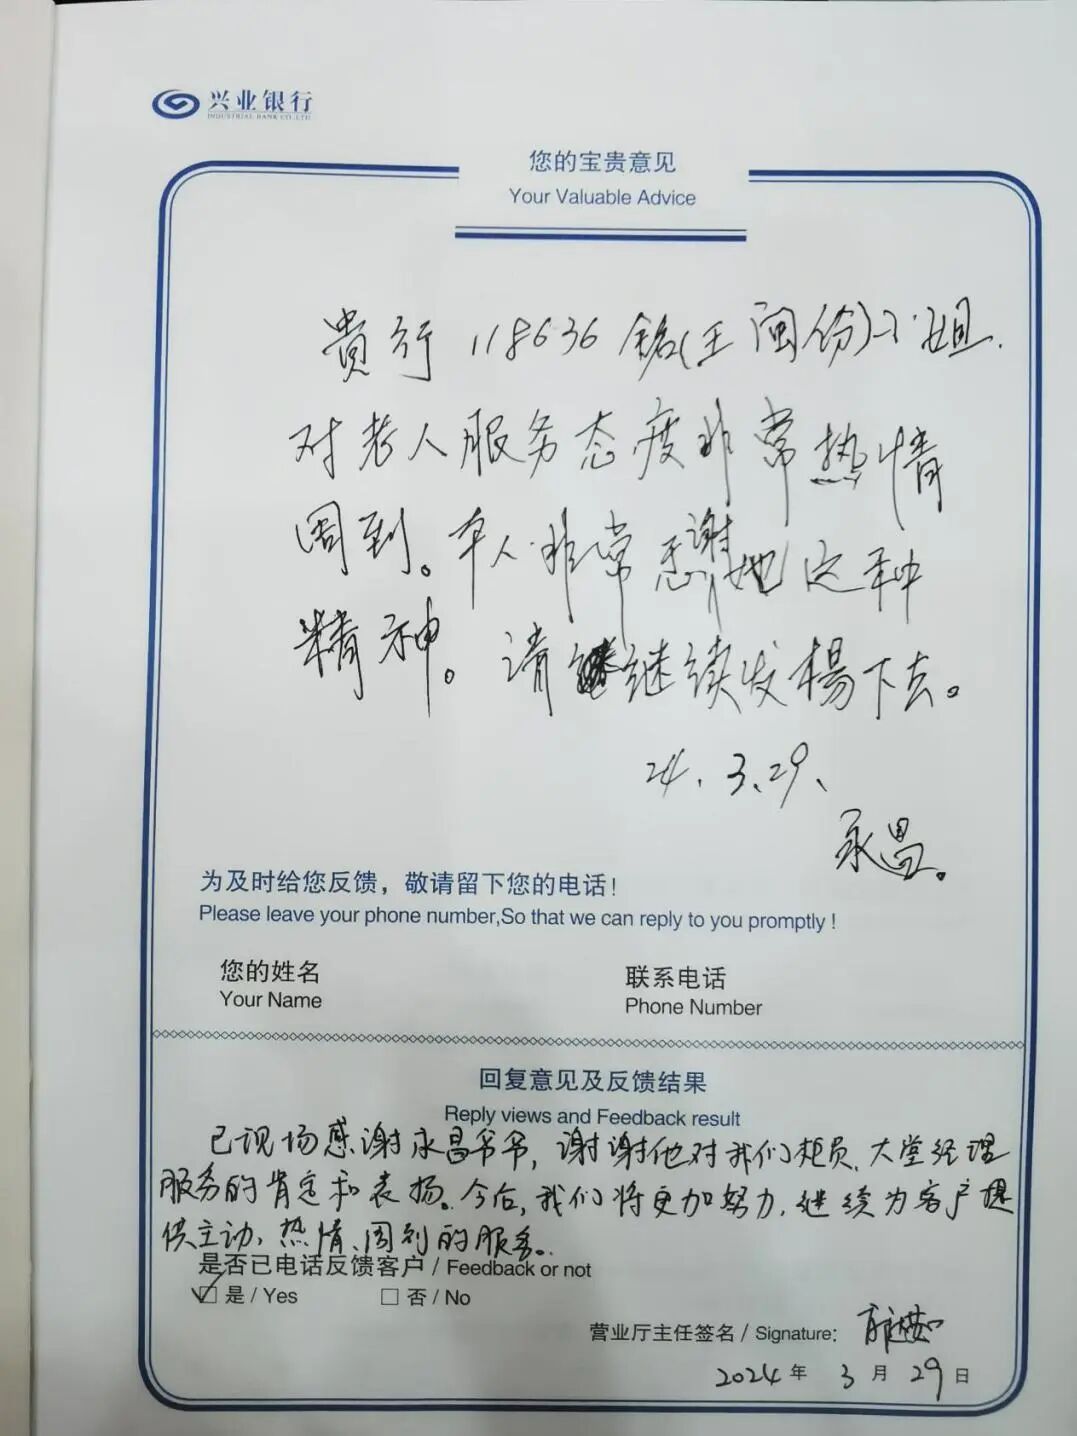 兴业银行
INDUSTRIAL BANK CO.,LTD.
您的宝贵意见
Your Valuable Advice
貴行 118636 銘(王闽份)小姐.
对老人服务态度非常热情
周到。本人非常感谢她这种
精神。请继续发楊下去。
24.3.29、
永昌。
为及时给您反馈，敬请留下您的电话！
Please leave your phone number,So that we can reply to you promptly !
您的姓名
联系电话
Your Name
Phone Number
回复意见及反馈结果
Reply views and Feedback result
已现场感谢永昌爷爷，谢谢他对我们柜员、大堂经理
服务的肯定和表扬。今后，我们将更加努力，继续为客户提
供主动、热情、周到的服务。
是否已电话反馈客户 / Feedback or not
是 / Yes
否 / No
营业厅主任签名 / Signature:
2024 年 3 月 29 日